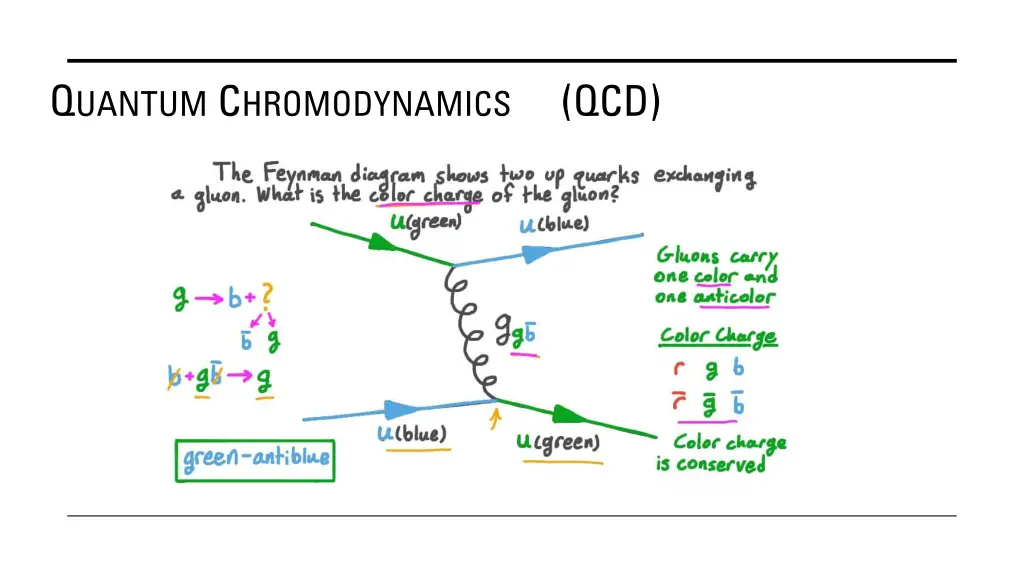 QUANTUM CHROMODYNAMICS (QCD)
The Feynman diagram shows two up quarks exchanging
a gluon. What is the color charge of the gluon?
u(green)
u(blue)
Gluons carry
one color and
one anticolor
g → b + ?
b̄ g
b + gb̄ → g
g gb̄
Color Charge
r g b
r̄ ḡ b̄
u(blue)
u(green)
Color charge
is conserved
green-antiblue